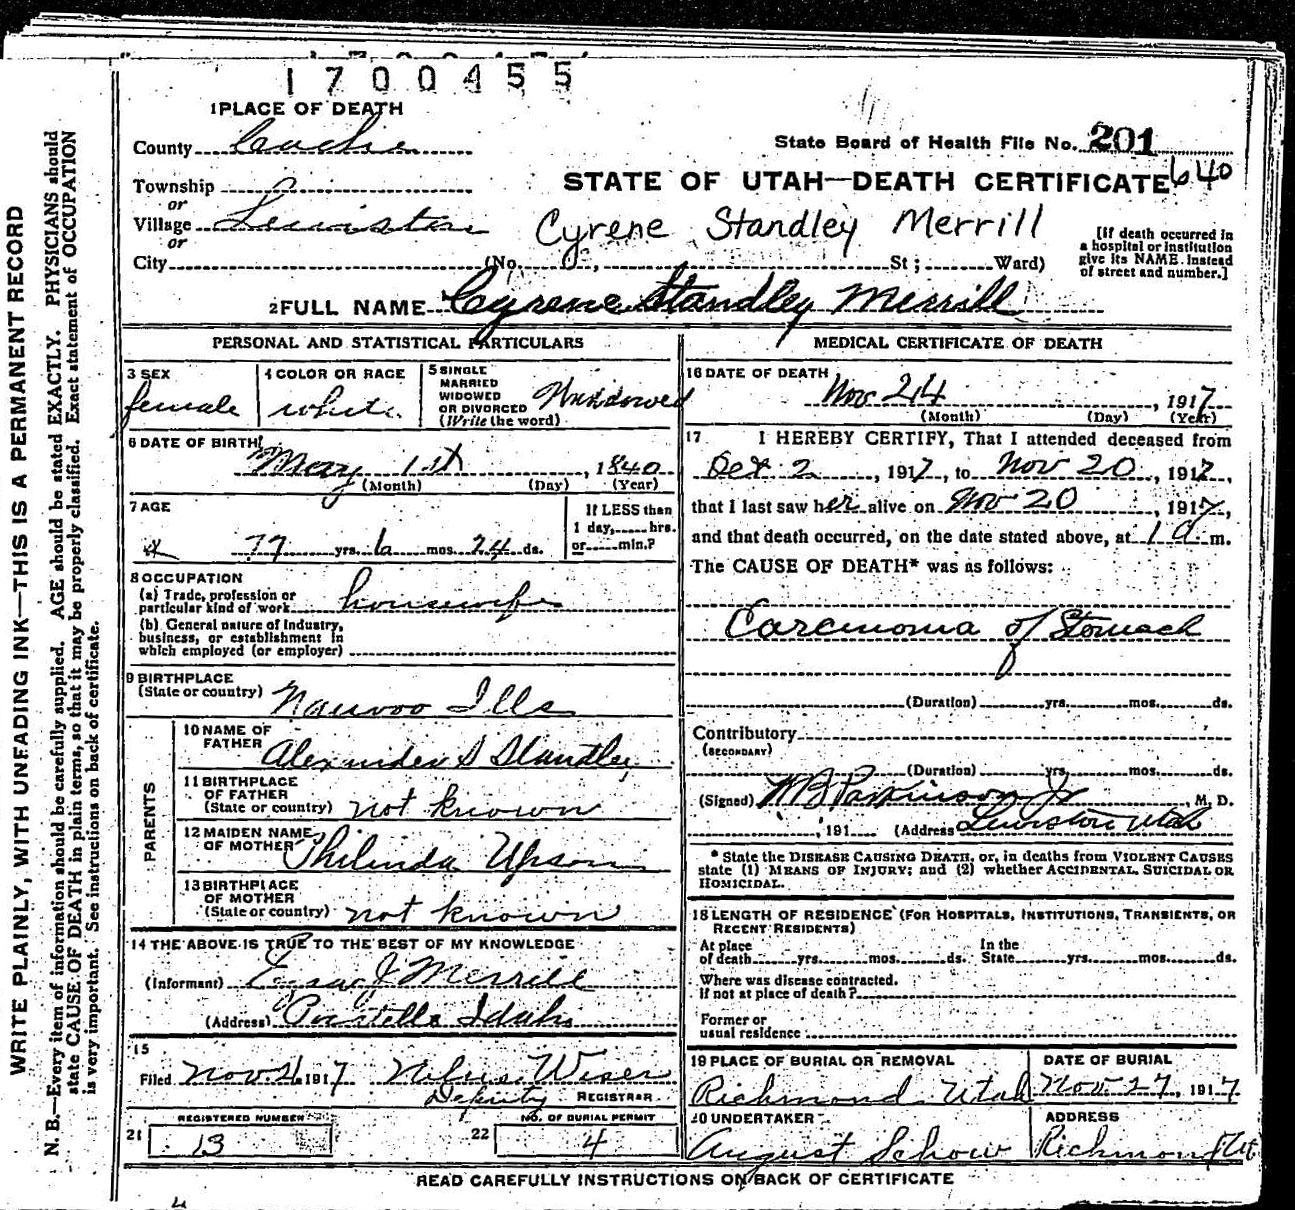 1700455
1 PLACE OF DEATH
County Cache
State Board of Health File No. 201
640
Township
or
Village Lewiston
or
City (No. , St ; Ward)
STATE OF UTAH—DEATH CERTIFICATE
Cyrene Standley Merrill
[If death occurred in
a hospital or institution
give its NAME. instead
of street and number.]
2 FULL NAME Cyrene Standley Merrill
PERSONAL AND STATISTICAL PARTICULARS
3 SEX
female
4 COLOR OR RACE
white
5 SINGLE
MARRIED
WIDOWED
OR DIVORCED
(Write the word)
Widowed
6 DATE OF BIRTH
May 1st, 1840
(Month) (Day) (Year)
7 AGE
77 yrs. 6 mos. 24 ds.
If LESS than
1 day, hrs.
or min.?
8 OCCUPATION
(a) Trade, profession or
particular kind of work housewife
(b) General nature of Industry,
business, or establishment in
which employed (or employer)
9 BIRTHPLACE
(State or country) Nauvoo Ills
PARENTS
10 NAME OF
FATHER Alexander S Standley
11 BIRTHPLACE
OF FATHER
(State or country) not known
12 MAIDEN NAME
OF MOTHER Philinda Upson
13 BIRTHPLACE
OF MOTHER
(State or country) not known
14 THE ABOVE IS TRUE TO THE BEST OF MY KNOWLEDGE
(Informant) J Merrill
(Address) Idaho
15
Filed Nov 1917 Wiser
Deputy REGISTRAR
REGISTERED NUMBER
21 13
NO. OF BURIAL PERMIT
22 4
MEDICAL CERTIFICATE OF DEATH
16 DATE OF DEATH
Nov 24, 1917
(Month) (Day) (Year)
17 I HEREBY CERTIFY, That I attended deceased from
2, 1917, to Nov 20, 1917,
that I last saw her alive on Nov 20, 1917,
and that death occurred, on the date stated above, at 1 a m.
The CAUSE OF DEATH* was as follows:
Carcinoma of Stomach
(Duration) yrs. mos. ds.
Contributory
(SECONDARY)
(Duration) yrs. mos. ds.
(Signed) W B Parkinson Jr, M. D.
, 191 (Address) Lewiston Utah
* State the DISEASE CAUSING DEATH, or, in deaths from VIOLENT CAUSES
state (1) MEANS OF INJURY; and (2) whether ACCIDENTAL, SUICIDAL OR
HOMICIDAL.
18 LENGTH OF RESIDENCE (FOR HOSPITALS, INSTITUTIONS, TRANSIENTS, OR
RECENT RESIDENTS)
At place
of death yrs. mos. ds.
In the
State yrs. mos. ds.
Where was disease contracted.
If not at place of death ?
Former or
usual residence
19 PLACE OF BURIAL OR REMOVAL
Richmond Utah
DATE OF BURIAL
Nov 27, 1917
20 UNDERTAKER
August Schow
ADDRESS
Richmond Ut
READ CAREFULLY INSTRUCTIONS ON BACK OF CERTIFICATE
WRITE PLAINLY, WITH UNFADING INK—THIS IS A PERMANENT RECORD
N. B.—Every item of information should be carefully supplied. AGE should be stated EXACTLY. PHYSICIANS should
state CAUSE OF DEATH in plain terms, so that it may be properly classified. Exact statement of OCCUPATION
is very important. See instructions on back of certificate.